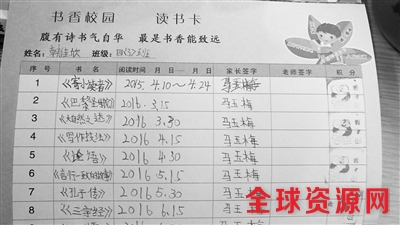 书香校园 读书卡
腹有诗书气自华 最是书香能致远
姓名： 班级：
序号 书名 阅读时间 月 日——月 日 家长签字 老师签字 积分
1 2015. 4.10～4.24 马玉梅
2 《巴黎圣母院》 2016. 3.15 马玉梅
3 2016. 3.30 马玉梅
4 《写作技法》 2016 4.15 马玉梅
5 《论语》 2016 4.30 马玉梅
6 《言行一致的故事》 2016 5.15 马玉梅
7 《孔子传》 2016 5.30 马玉梅
8 《三字经》 2016 6.15 马玉梅
全球资源网